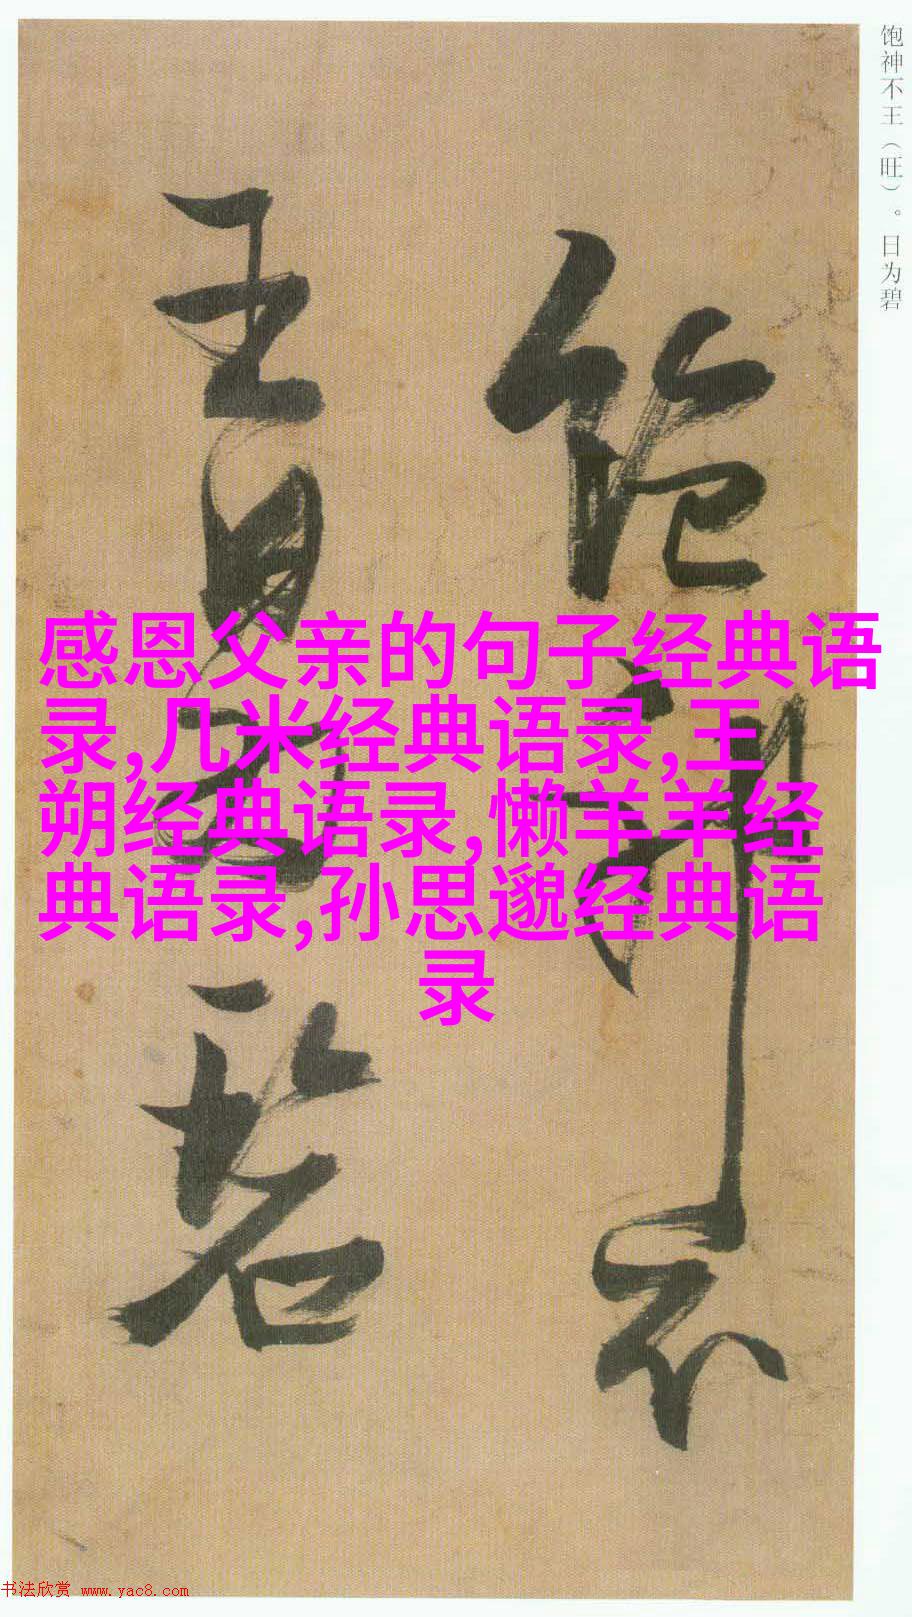 饱神不王（旺）。日为碧
饱神不
王日为碧
感恩父亲的句子经典语
录,几米经典语录,王
朔经典语录,懒羊羊经
典语录,孙思邈经典语
录
书法欣赏 www.yac8.com